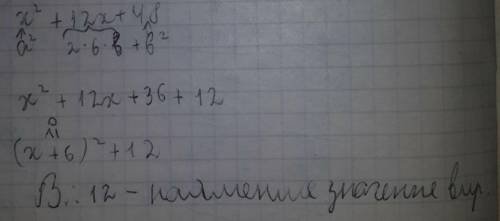 x² + 12x + 48
a² 2·6·b + b²
x² + 12x + 36 + 12
(x + 6)² + 12
В.: 12 – найменше значення вир.